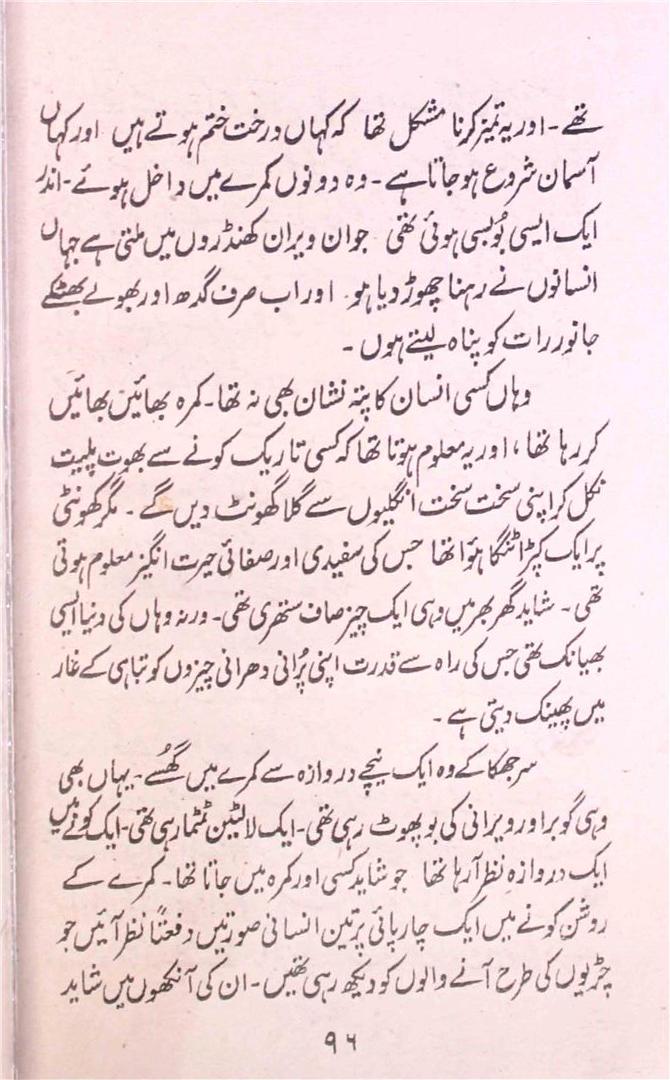 تھے۔ اور یہ تمیز کرنا مشکل تھا کہ کہاں درخت ختم ہوتے ہیں اور کہاں
آسمان شروع ہو جاتا ہے۔ وہ دونوں کمرے میں داخل ہوئے۔ اندر
ایک ایسی بُو بسی ہوئی تھی جو ان ویران کھنڈروں میں ملتی ہے جہاں
انسانوں نے رہنا چھوڑ دیا ہو۔ اور اب صرف گدھ اور بھولے بھٹکے
جانور رات کو پناہ لیتے ہوں۔
وہاں کسی انسان کا پتہ نشان بھی نہ تھا۔ کمرہ بھائیں بھائیں
کر رہا تھا، اور یہ معلوم ہوتا تھا کہ کسی تاریک کونے سے بھوت پلیت
نکل کر اپنی سخت سخت انگلیوں سے گلا گھونٹ دیں گے۔ مگر کھونٹی
پر ایک کپڑا ٹنگا ہوٴا تھا جس کی سفیدی اور صفائی حیرت انگیز معلوم ہوتی
تھی۔ شاید گھر بھر میں وہی ایک چیز صاف ستھری تھی۔ ورنہ وہاں کی دنیا ایسی
بھیانک تھی جس کی راہ سے قدرت اپنی پُرانی دھرانی چیزوں کو تباہی کے غار
میں پھینک دیتی ہے۔
سر جھکا کے وہ ایک نیچے دروازہ سے کمرے میں گھُسے۔ یہاں بھی
وہی گوبر اور ویرانی کی بو پھوٹ رہی تھی۔ ایک لالٹین ٹمٹما رہی تھی۔ ایک کونے میں
ایک دروازہ نظر آ رہا تھا جو شاید کسی اور کمرہ میں جاتا تھا۔ کمرے کے
روشن کونے میں ایک چارپائی پر تین انسانی صورتیں دفعتاً نظر آئیں جو
چڑیوں کی طرح آنے والوں کو دیکھ رہی تھیں۔ ان کی آنکھوں میں شاید
۹۶